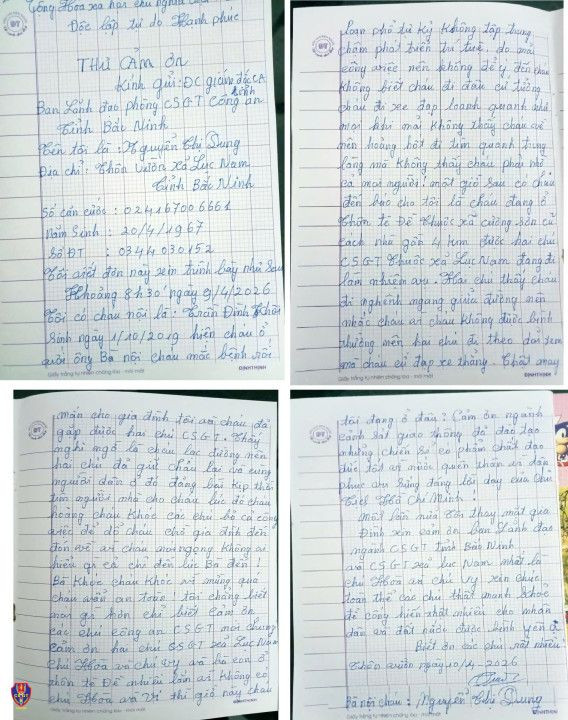 Cộng Hòa xã hội chủ nghĩa
Độc lập tự do Hạnh phúc
THƯ CẢM ƠN
Kính gửi: ĐC giám đốc CA
tỉnh
Ban Lãnh đạo phòng CSGT Công an
Tỉnh Bắc Ninh
Tên tôi là: Nguyễn Thị Dung
Địa chỉ: Thôn Vườn xã Lục Nam
Tỉnh Bắc Ninh
Số căn cước: 024167006661
Năm Sinh: 20/4/1967
Số ĐT: 0344030152
Tôi viết đơn này xin trình bày như sau
Khoảng 8h30' ngày 9/4/2026
Tôi có cháu nội là: Trần Đình
Sinh ngày 1/10/2019 hiện cháu ở
với ông Bà nội cháu mắc bệnh rối
Giấy trắng tự nhiên chống lóa - mỏi mắt
ĐINHTHINH
loạn phổ tự kỷ không tập trung
chậm phát triển trí tuệ, do mải
công việc nên không để ý đến cháu
không biết cháu đi đâu cứ tưởng
cháu đi xe đạp loanh quanh đâu
mãi khi mãi không thấy cháu về
nên hoảng hốt đi tìm quanh trong
làng mà không thấy cháu phải nhờ
cả mọi người. một giờ sau có cháu
đến báo cho tôi là cháu đang ở
thôn tè Dề thuộc xã cương sơn cũ
cách nhà gần 4 km được hai chú
CSGT thuộc xã Lục Nam đang đi
làm nhiệm vụ. Hai chú thấy cháu
đi nghênh ngang giữa đường nên
nhắc cháu vì cháu không được bình
thường nên hai chú đi theo dõi xem
mà cháu cứ đạp xe thẳng. Thật may
Giấy trắng tự nhiên chống lóa - mỏi mắt
ĐINHTHINH
mắn cho gia đình tôi và cháu đã
gặp được hai chú CSGT. Thấy
nghi ngờ là cháu lạc đường nên
hai chú đã giữ cháu lại và cùng
người dân ở đó đăng bài kịp thời
tìm người nhà cho cháu lúc đó cháu
hoảng cháu khóc các chú bỏ cả công
việc để dỗ cháu chờ gia đình đến
đón về vì cháu mơ ngọng không ai
hiểu gì cả chỉ đến lúc Bà đến!
Bà khóc cháu khóc vì mừng quá
cháu vẫn an toàn! tôi chẳng biết
mong gì hơn chỉ biết cảm ơn
các chú công an CSGT nói chung
cảm ơn hai chú CSGT xã Lục Nam
chú Hoà và chú vy và bà con ở
thôn tè Dề nhiều lắm ạ! không có
chú Hoà và Vi thì giờ này cháu
Giấy trắng tự nhiên chống lóa - mỏi mắt
ĐINHTHINH
CSGT
tôi đang ở đâu? Cảm ơn ngành
cảnh sát giao thông đã đào tạo
những chiến sĩ có phẩm chất đạo
đức tốt vì nước quên thân vì dân
phục vụ xứng đáng lời dạy của Chủ
Tịch Hồ Chí Minh!
Một lần nữa tôn thay mặt gia
Đình xin cảm ơn ban Lãnh đạo
ngành CSGT tỉnh Bắc Ninh
và CSGT xã lục Nam nhất là
chú Hoà và chú Vy xin chúc
toàn thể các chú thật mạnh khỏe
để cống hiến thật nhiều cho nhân
dân và đất nước được bình yên ạ
Biết ơn các chú rất nhiều
Thôn vườn ngày 10/4-2026
Bà nội cháu: Nguyễn Thị Dung
ĐINHTHINH